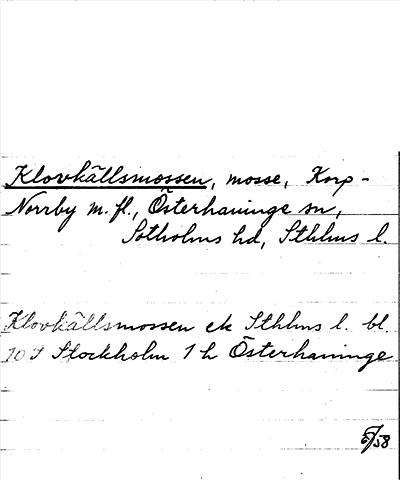 Klovkällsmossen, mosse, Korp-
Norrby m. fl., Österhaninge sn,
Sotholms hd, Sthlms l.
Klovkällsmossen ek Sthlms l. bl.
10 I Stockholm 1 h Österhaninge
/58